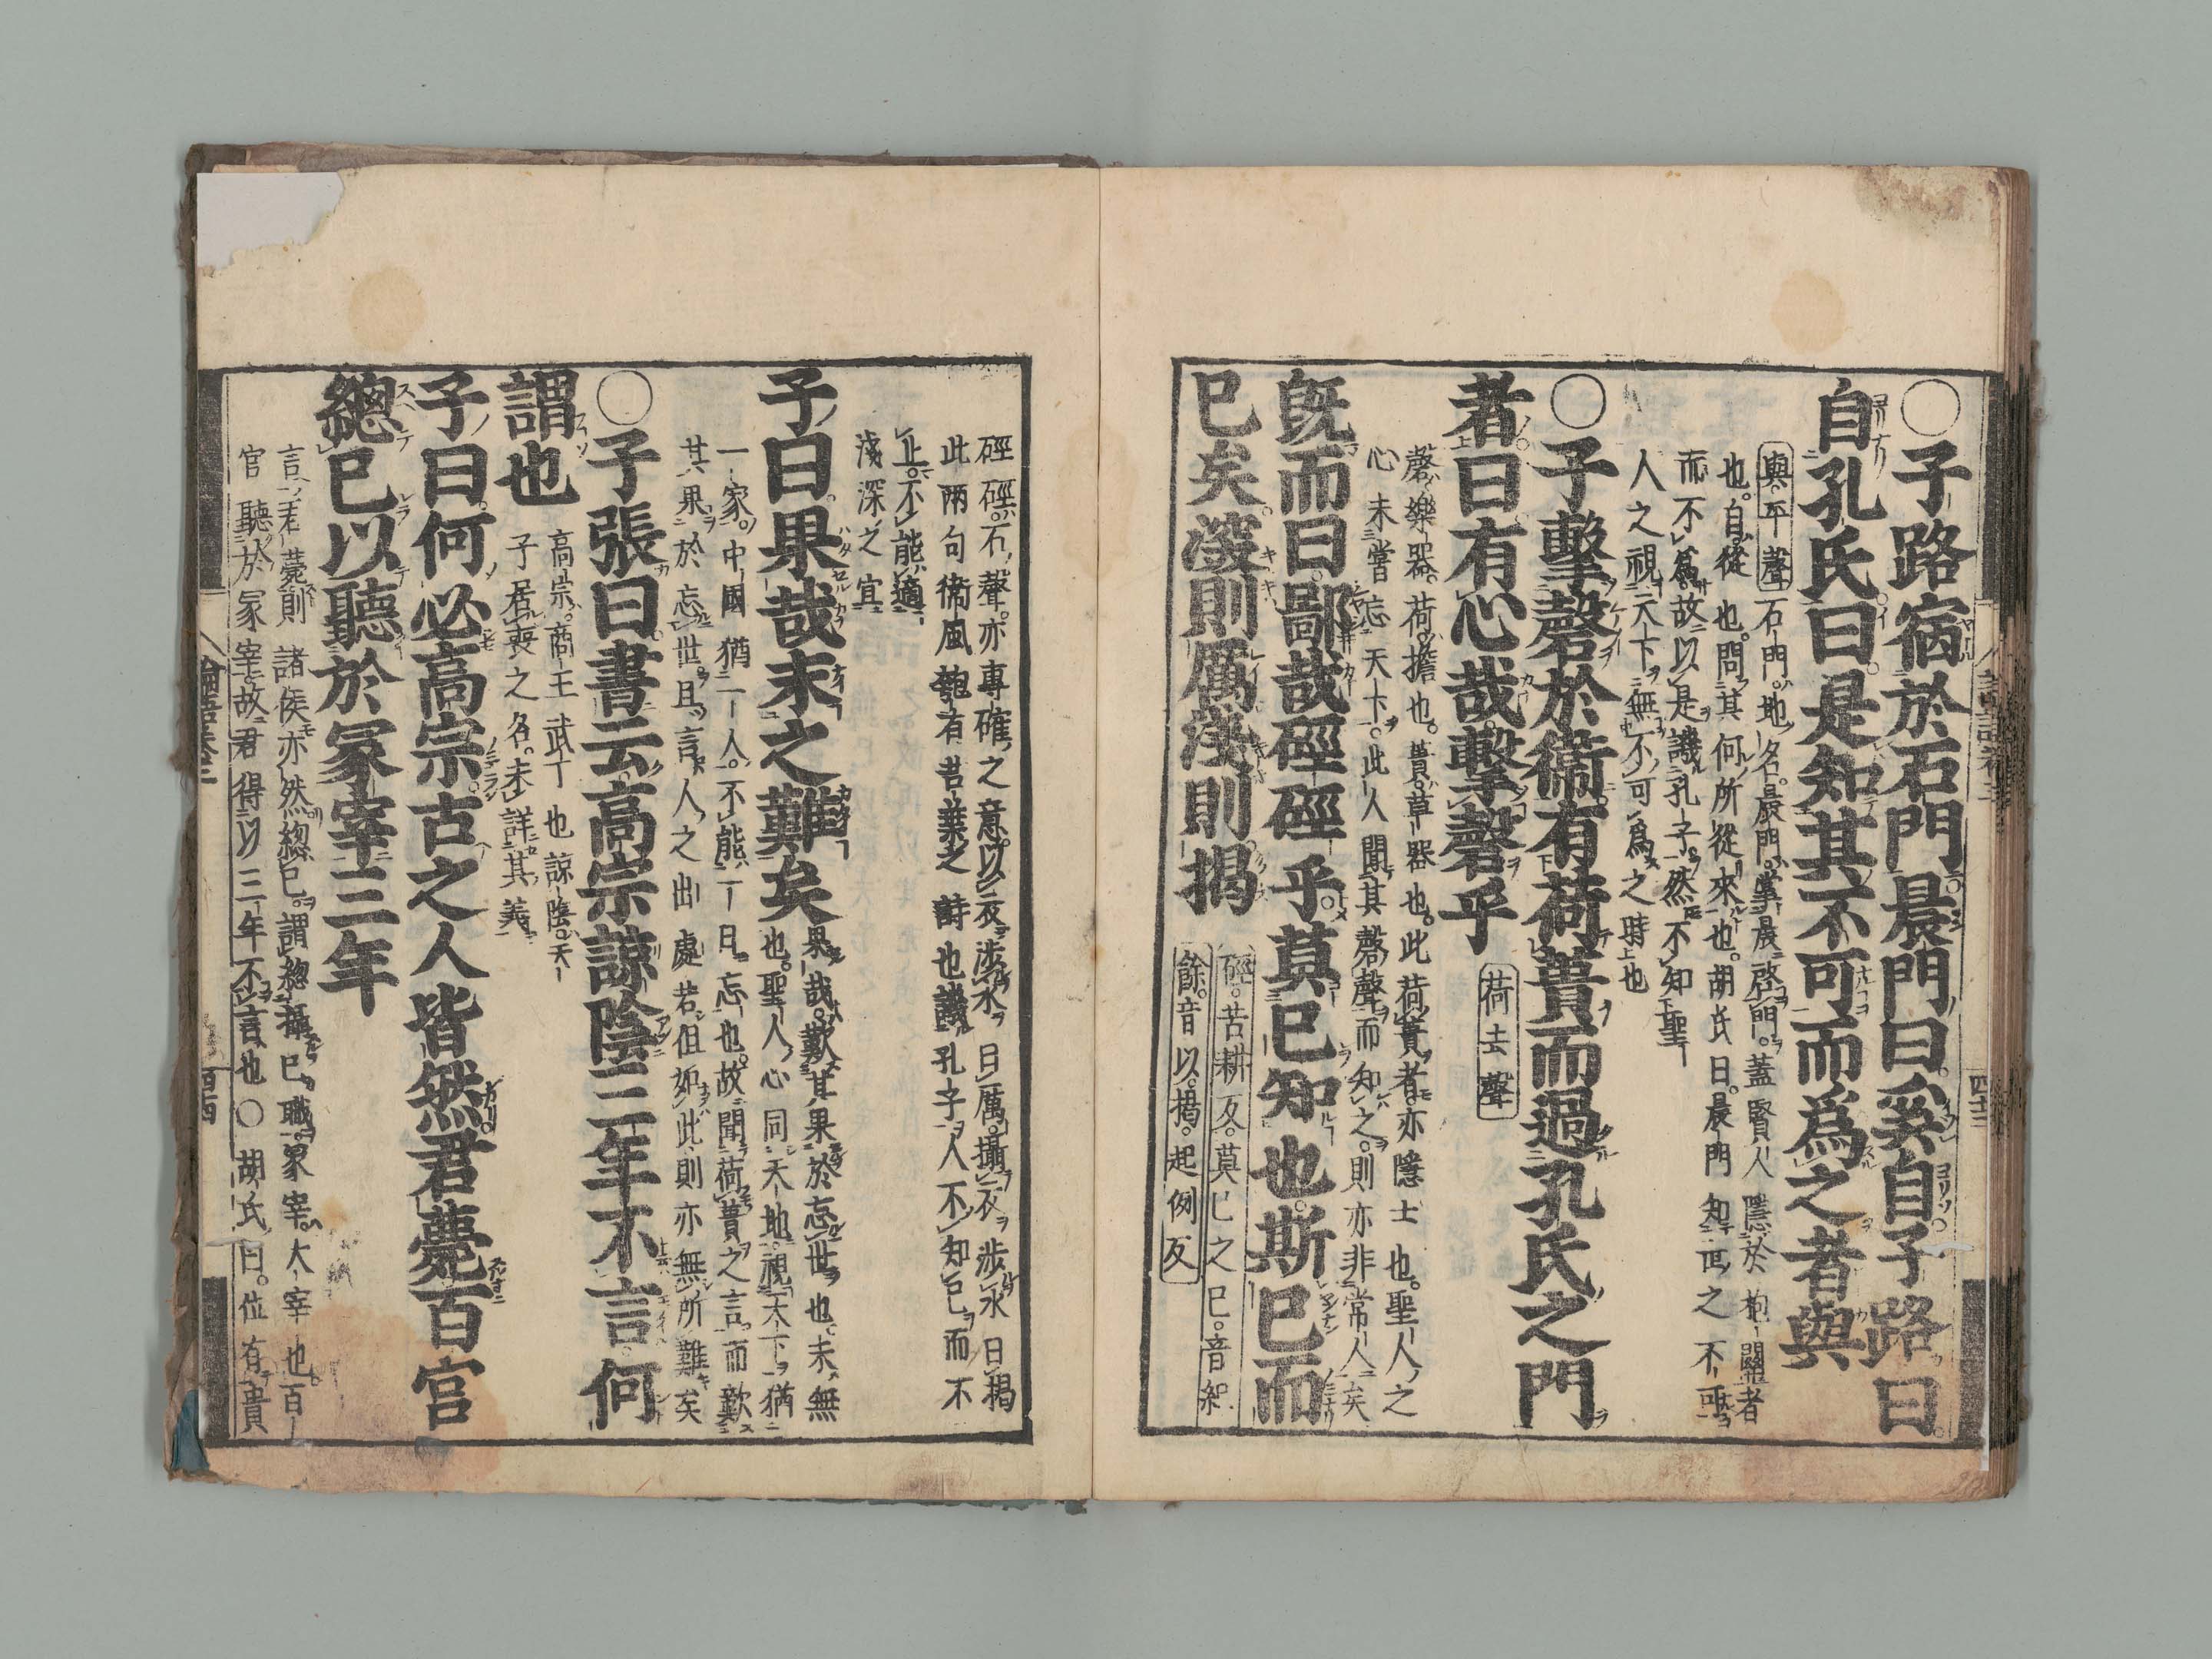 ○子路宿於石門晨門曰奚自子路曰
自孔氏曰是知其不可而爲之者與
與平聲 石門地名晨門掌晨啓門蓋賢人隱於抱關者
也自從也問其何所從來也胡氏曰晨門知世之不可
而不爲故以是譏孔子然不知聖
人之視天下無不可爲之時也
○子擊磬於衞有荷蕢而過孔氏之門
者曰有心哉擊磬乎 荷去聲
磬樂器荷擔也蕢草器也此荷蕢者亦隱士也聖人之
心未嘗忘天下此人聞其磬聲而知之則亦非常人矣
既而曰鄙哉硜硜乎莫己知也斯已而
已矣深則厲淺則揭
硜苦耕反莫己之己音紀
餘音以揭起例反
硜硜石聲亦專確之意以衣涉水曰厲攝衣涉水曰揭
此兩句衞風匏有苦葉之詩也譏孔子人不知己而不
止不能適
淺深之宜
子曰果哉末之難矣
果哉歎其果於忘世也末無
也聖人心同天地視天下猶
一家中國猶一人不能一日忘也故聞荷蕢之言而歎
其果於忘世且言人之出處若但如此則亦無所難矣
○子張曰書云高宗諒陰三年不言何
謂也
高宗商王武丁也諒陰天
子居喪之名未詳其義
子曰何必高宗古之人皆然君薨百官
總己以聽於冢宰三年
言君薨則諸侯亦然總己謂總攝己職冢宰大宰也百
官聽於冢宰故君得以三年不言也○胡氏曰位有貴